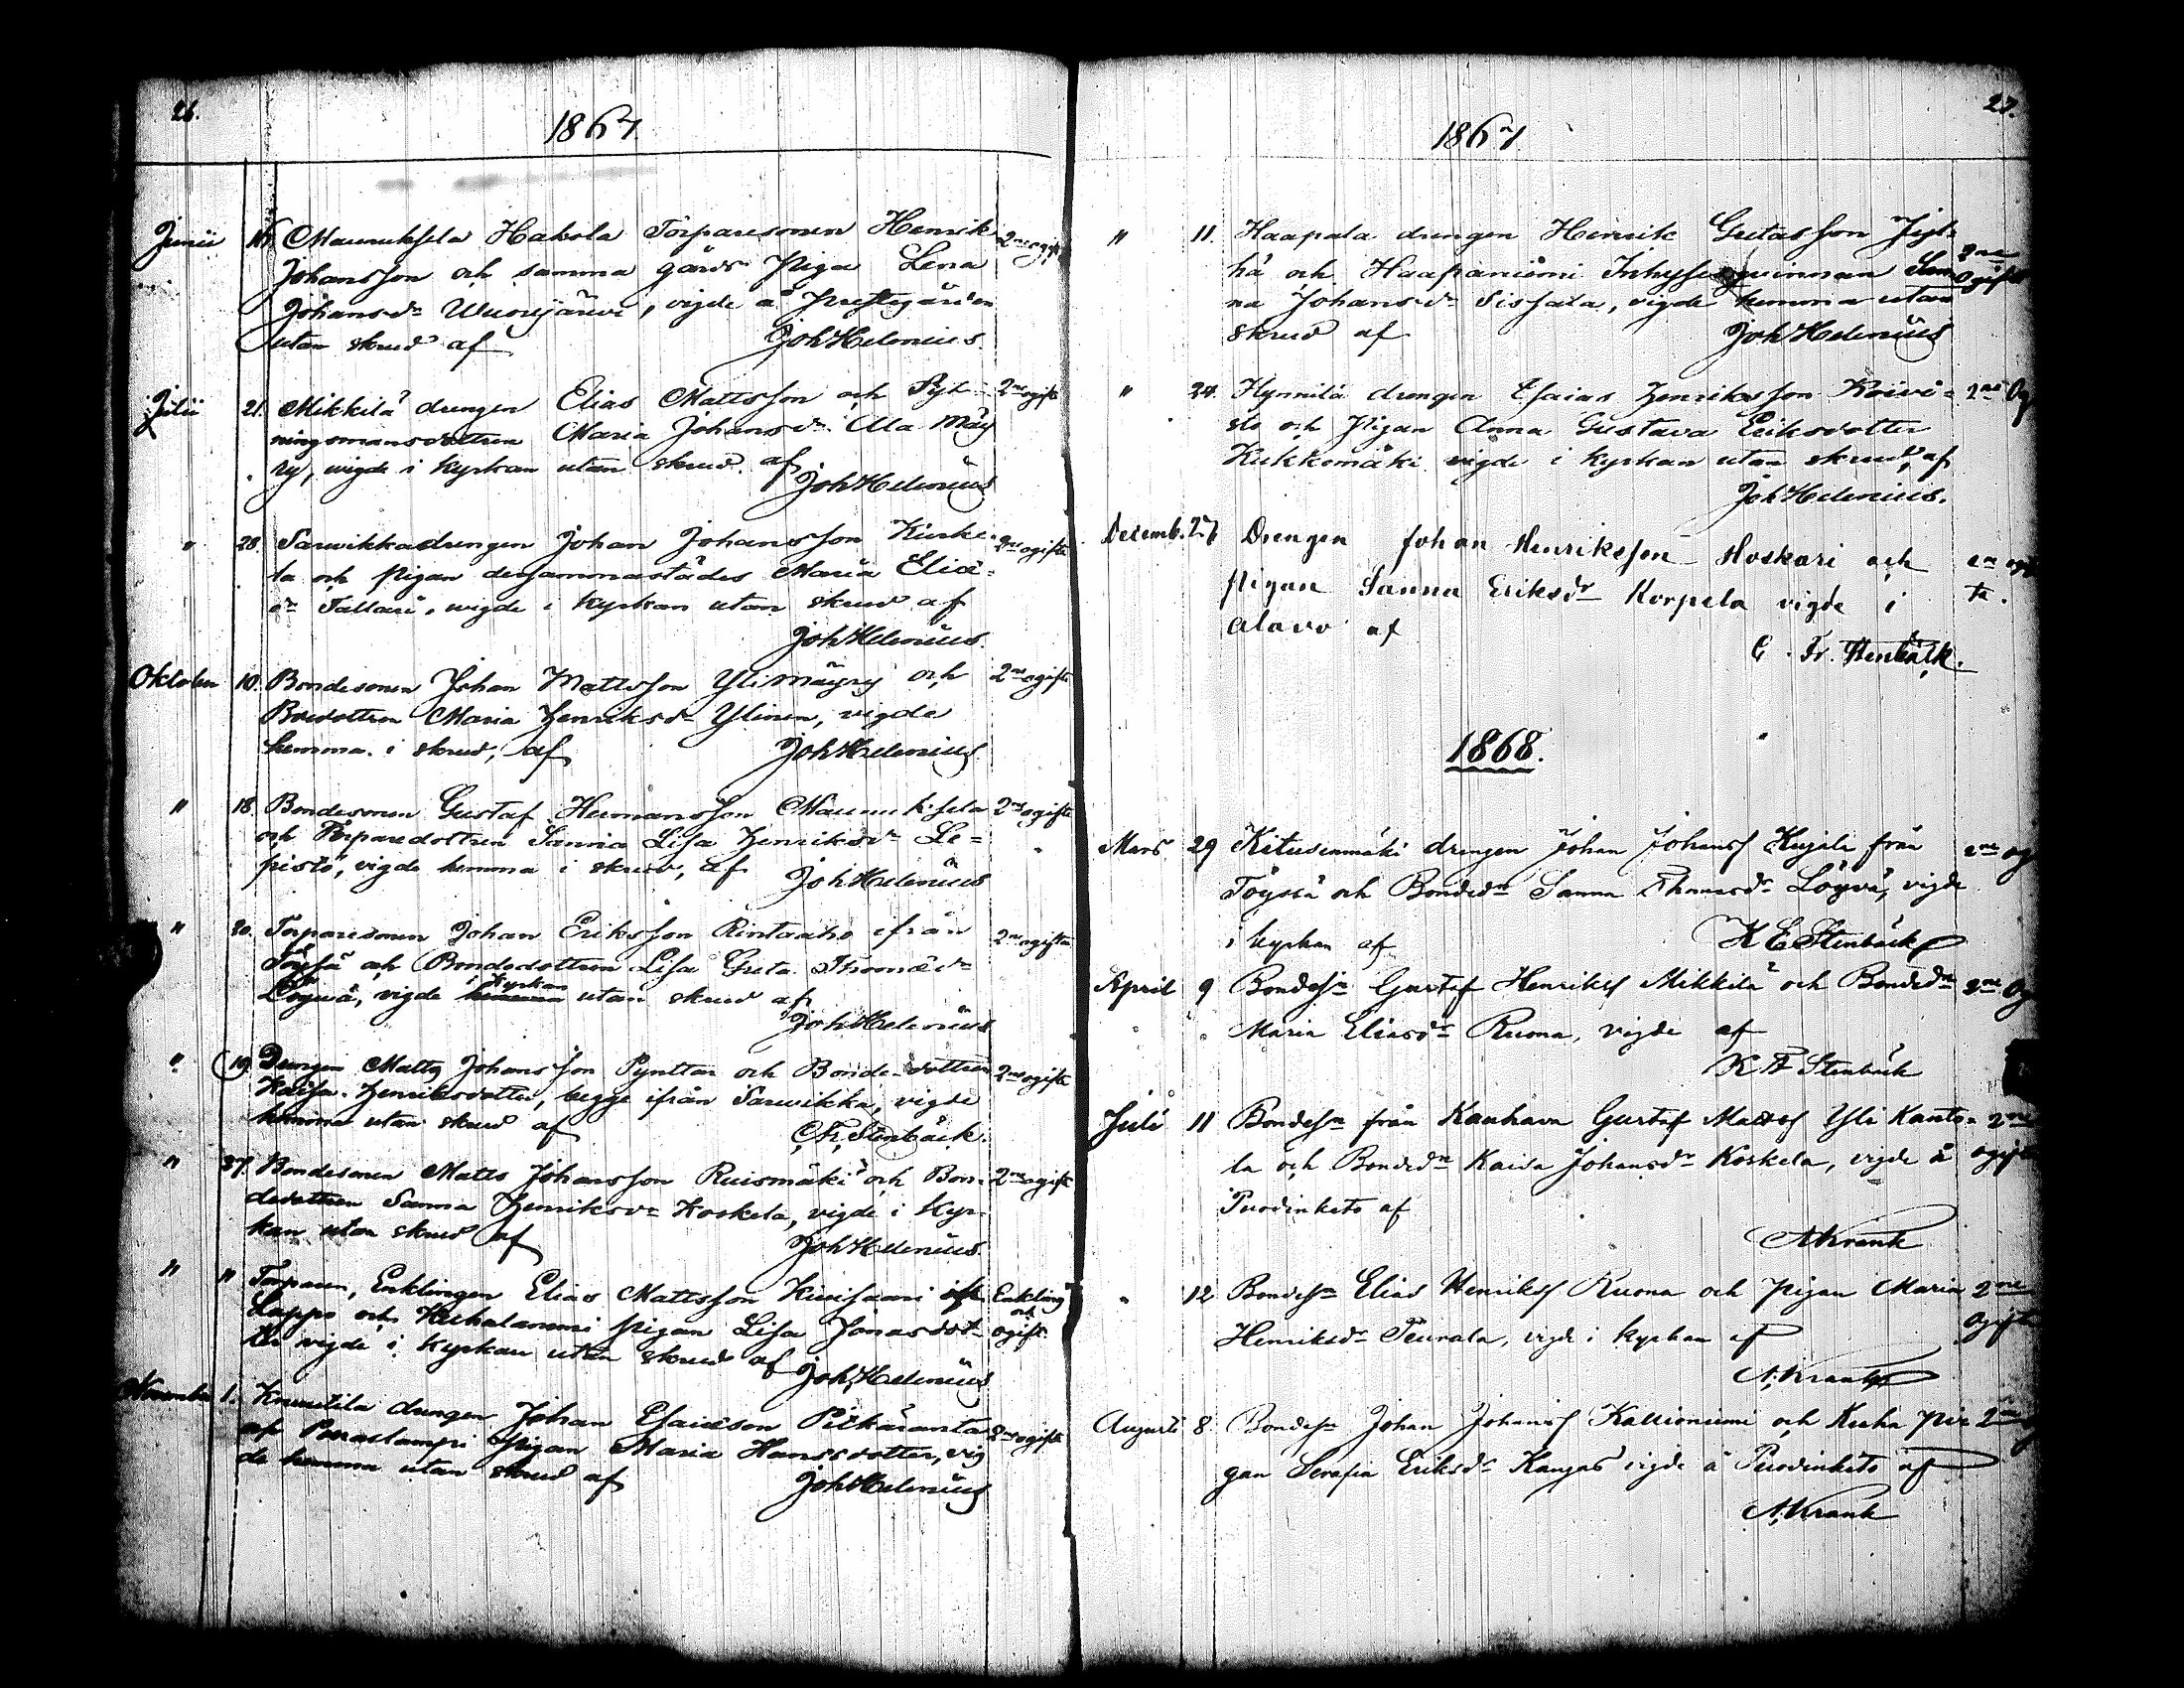 26.
1867
Junii 16. Maunuksela Hakola Torparesonen Henrik 2ne ogift
Johansson och samma gårds Piga Lena
Johansdr Wuorijärvi, vigde å Prestegården
utan skrud af Joh Helenius.
Julii 21. Mikkilä drengen Elias Mattsson och Syt- 2ne ogift
ningsmansdottren Maria Johansdr Ala Mäy
ry, wigde i kyrkan utan skrud af
Joh Helenius
" 28. Sarvikka drengen Johan Johansson 2ne ogifta
la och pigan dersammastädes Maria Elia-
dr Tallari, wigde i kyrkan utan skrud af
Joh Helenius.
Oktober 10. Bondesonen Johan Mattsson Yli Mäyry och 2ne ogifta
Bdedottren Maria Henriksdr Ylinen, vigde
hemma i skrud, af Joh Helenius
" 18. Bondesonen Gustaf Hermansson Maunuksela 2ne ogifta
och Torparedottren Sanna Lisa Henriksdr Le=
pistö, vigde hemma i skrud, af Joh Helenius
" 20. Torparesonen Johan Eriksson Rintaaho ifrån 2ne ogifta
Töysä och Bondedottren Lisa Greta Thomædr
i Kyrkan
Löyvä, vigde hemma utan skrud af
Joh Helenius
" 19 Drengen Matts Johansson Pynttäri och Bonde-dottren 2ne ogifta
Kaisa Henriksdotter, begge ifrån Sarvikka, vigde
hemma utan skrud af C. Fr. Stenbäck.
" 27. Bondesonen Matts Johansson Ruismäki och Bon- 2ne ogift
dedottren Sanna Henriksdr Koskela, vigde i Kyr-
kan utan skrud af Joh Helenius.
" " Torparen, Enklingen Elias Mattsson Kuusisaari ifr. Enkling
och
Lappo och Kuhalammi pigan Lisa Jonasdot- ogift
ter vigde i Kyrkan utan skrud af Joh. Helenius
November 1. Knuutila drengen Johan Esaiasson Pitkäranta 2ne ogifta
och Pouraslampi pigan Maria Hansdotter, vig
de hemma utan skrud af Joh Helenius
27.
1867
" 11. Haapala drengen Henrik Gustafsson
hä och Haapaniemi Inhyseqvinnan San 2ne ogifta
na Johansdr Sissala, vigde hemma utan
skrud af Joh Helenius
" 24. Hynnilä drengen Esaias Henriksson Koivi= 2ne Og
sto och Pigan Anna Gustava Eriksdotter
Kukkomäki vigde i kyrkan utan skrud, af
Joh Helenius.
Decemb. 27 Drengen Johan Henriksson Hoskari och 2ne ogif
pigan Sanna Eriksdr Korpela vigde i ta.
Alavo af
C. Fr. Stenbäck.
1868.
Mars 29 Kitusenmäki drengen Johan Johanss Kujala från 2ne og
Töysä och Bondedr Sanna Thomasdr Löyvä, vigde
i kyrkan af K E Stenbäck
April 9 Bondesn Gustaf Henrikss Mikkilä och Bondedr 2ne Og
Maria Eliasdr Ruona, vigde af
K F Stenbäck
Juli 11 Bondesn från Kauhava Gustaf Mattss Yli Kanto= 2ne
la och Bondedr Kaisa Johansdr Koskela, vigde å ogift
Puodinketo af
A Krank
" 12 Bondesn Elias Henrikss Ruona och pigan Maria 2ne
Henriksdr Peurala, vigde i kyrkan af Ogift
A. Krank
Augusti 8. Bondesn Johan Johanss Kallioniemi och Kuha pi= 2ne
gan Serafia Eriksdr Kangas vigde å Puodinketo af
A. Krank